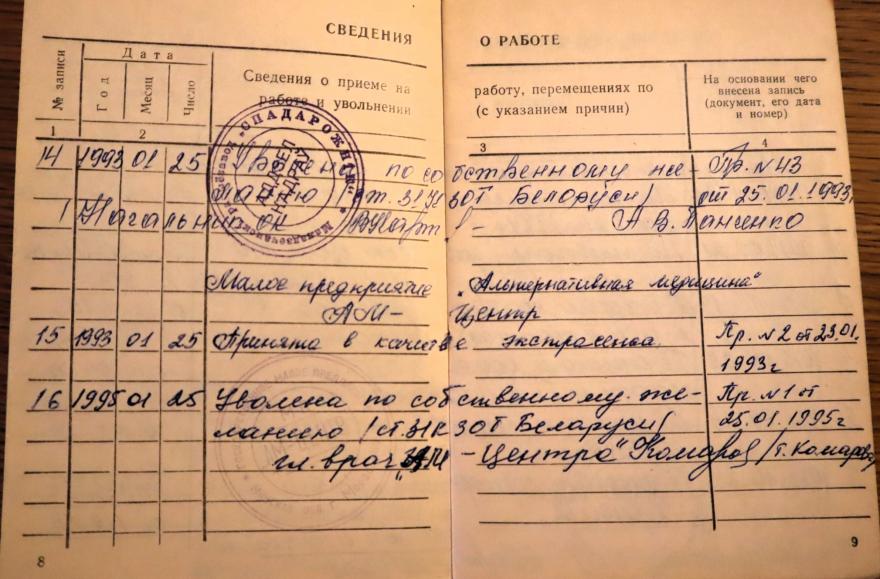 СВЕДЕНИЯ О РАБОТЕ
№ записи
Дата
Год
Месяц
Число
Сведения о приеме на работу, перемещениях по
работе и увольнении (с указанием причин)
На основании чего
внесена запись
(документ, его дата
и номер)
1 2 3 4
14 1993 01 25 по собственному же- Пр. N 43
ЗОТ Беларуси/ от 25.01.1993
Начальник ОК А.В. Панченко
СПАДАРОЖНIК
АДДЗЕЛ
КАДРАЎ
Малое предприятие „Альтернативная медицина“
АМ- Центр
15 1993 01 25 Принята в качестве экстрасенса. Пр. N 2 от 23.01.
1993г
16 1995 01 25 Уволена по собственному же- Пр. N 1 от
ланию /ст.31 К ЗОТ Беларуси/ 25.01.1995г
гл. врач „АМ - Центра“ Комаров
8
9